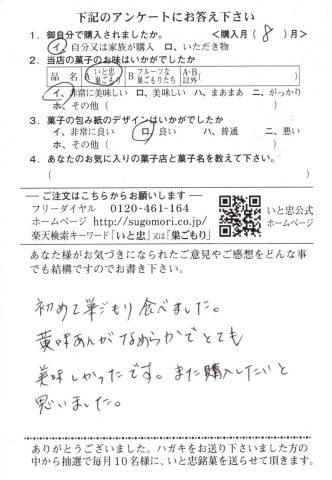 下記のアンケートにお答え下さい
1. 御自分で購入されましたか。 <購入月( 8 )月>
イ、自分又は家族が購入 ロ、いただき物
2. 当店の菓子のお味はいかがでしたか
品名 いと忠巣ごもり B フルーツな巣ごもりたち A・B以外( )
イ、非常に美味しい ロ、美味しい ハ、まあまあ ニ、がっかり
ホ、その他( )
3. 菓子の包み紙のデザインはいかがでしたか
イ、非常に良い ロ、良い ハ、普通 ニ、悪い
ホ、その他( )
4. あなたのお気に入りの菓子店と菓子名を教えて下さい。
( )
―ご注文はこちらからお願いします―
フリーダイヤル 0120-461-164
ホームページ http://sugomori.co.jp/
楽天検索キーワード「いと忠」又は「巣ごもり」
いと忠公式
ホームページ
あなた様がお気づきになられたご意見やご感想をどんな事
でも結構ですのでお書き下さい。
初めて巣ごもり食べました。
黄味あんがなめらかでとても
美味しかったです。また購入したいと
思いました。
ありがとうございました。ハガキをお送り下さいました方の
中から抽選で毎月10名様に、いと忠銘菓を送らせて頂きます。